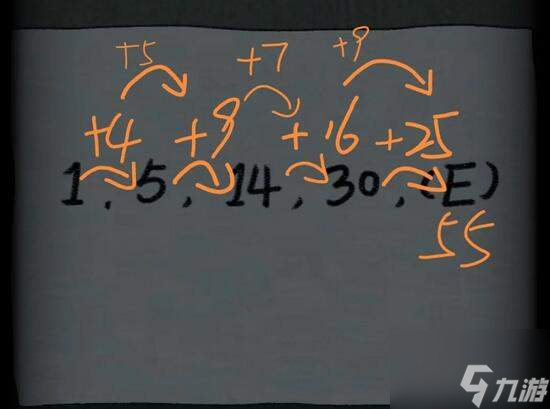 +5 +7 +9
+4 +9 +16 +25
1, 5, 14, 30, (E)
55
九游